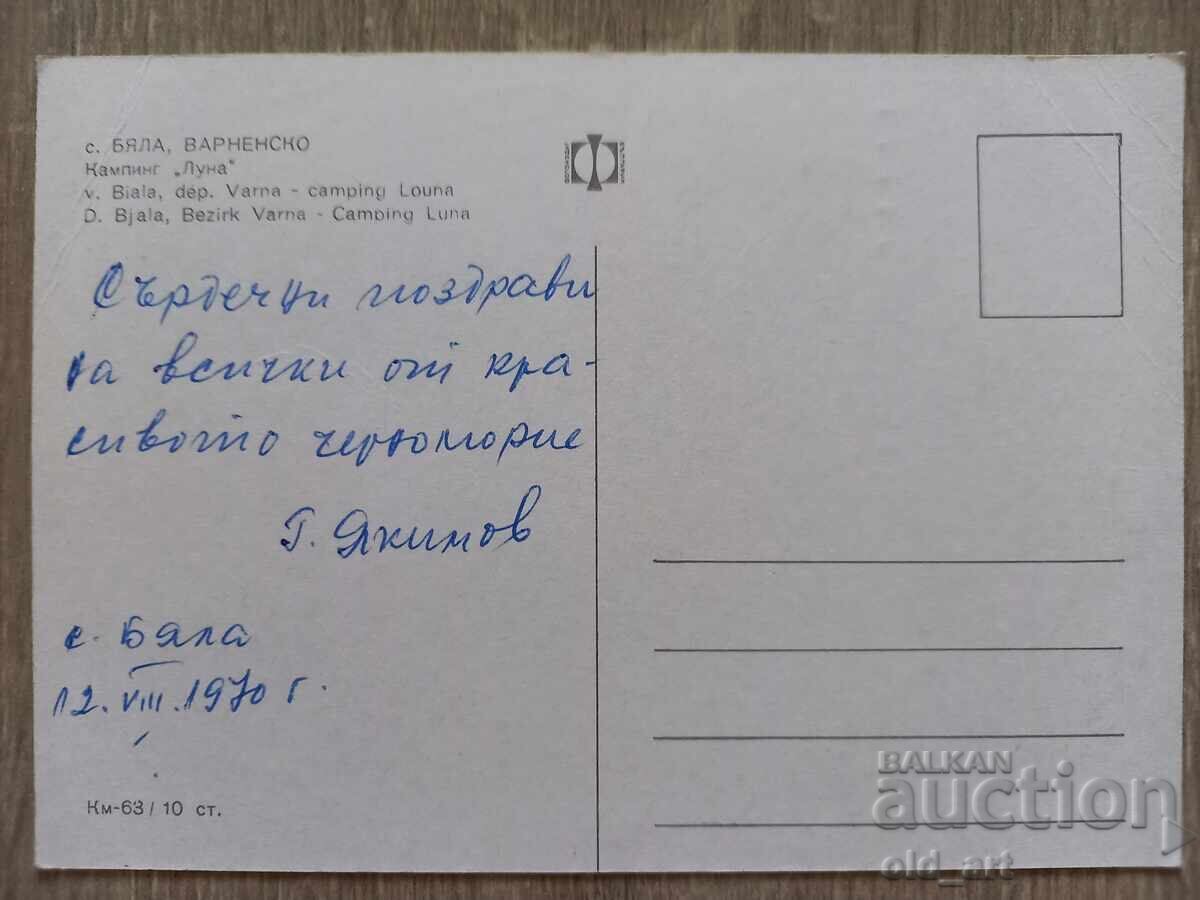 с. БЯЛА, ВАРНЕНСКО
Кампинг „Луна"
v. Biala, dép. Varna - camping Louna
D. Bjala, Bezirk Varna - Camping Luna
Сърдечни поздрави
на всички от кра-
сивото черноморие
Г. Якимов
с. Бяла
12. VIII. 1970 г.
Км-63 / 10 ст.
BALKAN
auction
old_art